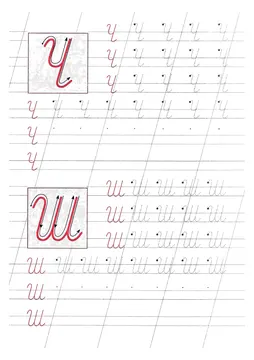 Ч
Ч Ч Ч Ч Ч Ч
Ч Ч Ч Ч Ч Ч
Ч Ч Ч Ч Ч Ч
Ч Ч Ч Ч Ч Ч Ч Ч
Ч
Ч
Ш
Ш Ш Ш Ш Ш Ш
Ш Ш Ш Ш Ш Ш
Ш Ш Ш Ш Ш Ш
Ш Ш Ш Ш Ш Ш Ш Ш
Ш
Ш